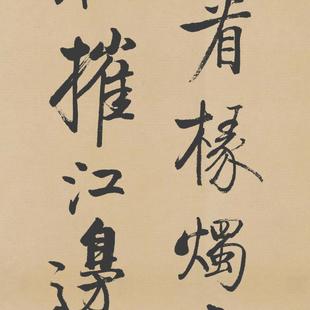 看椽燭
摧江邊